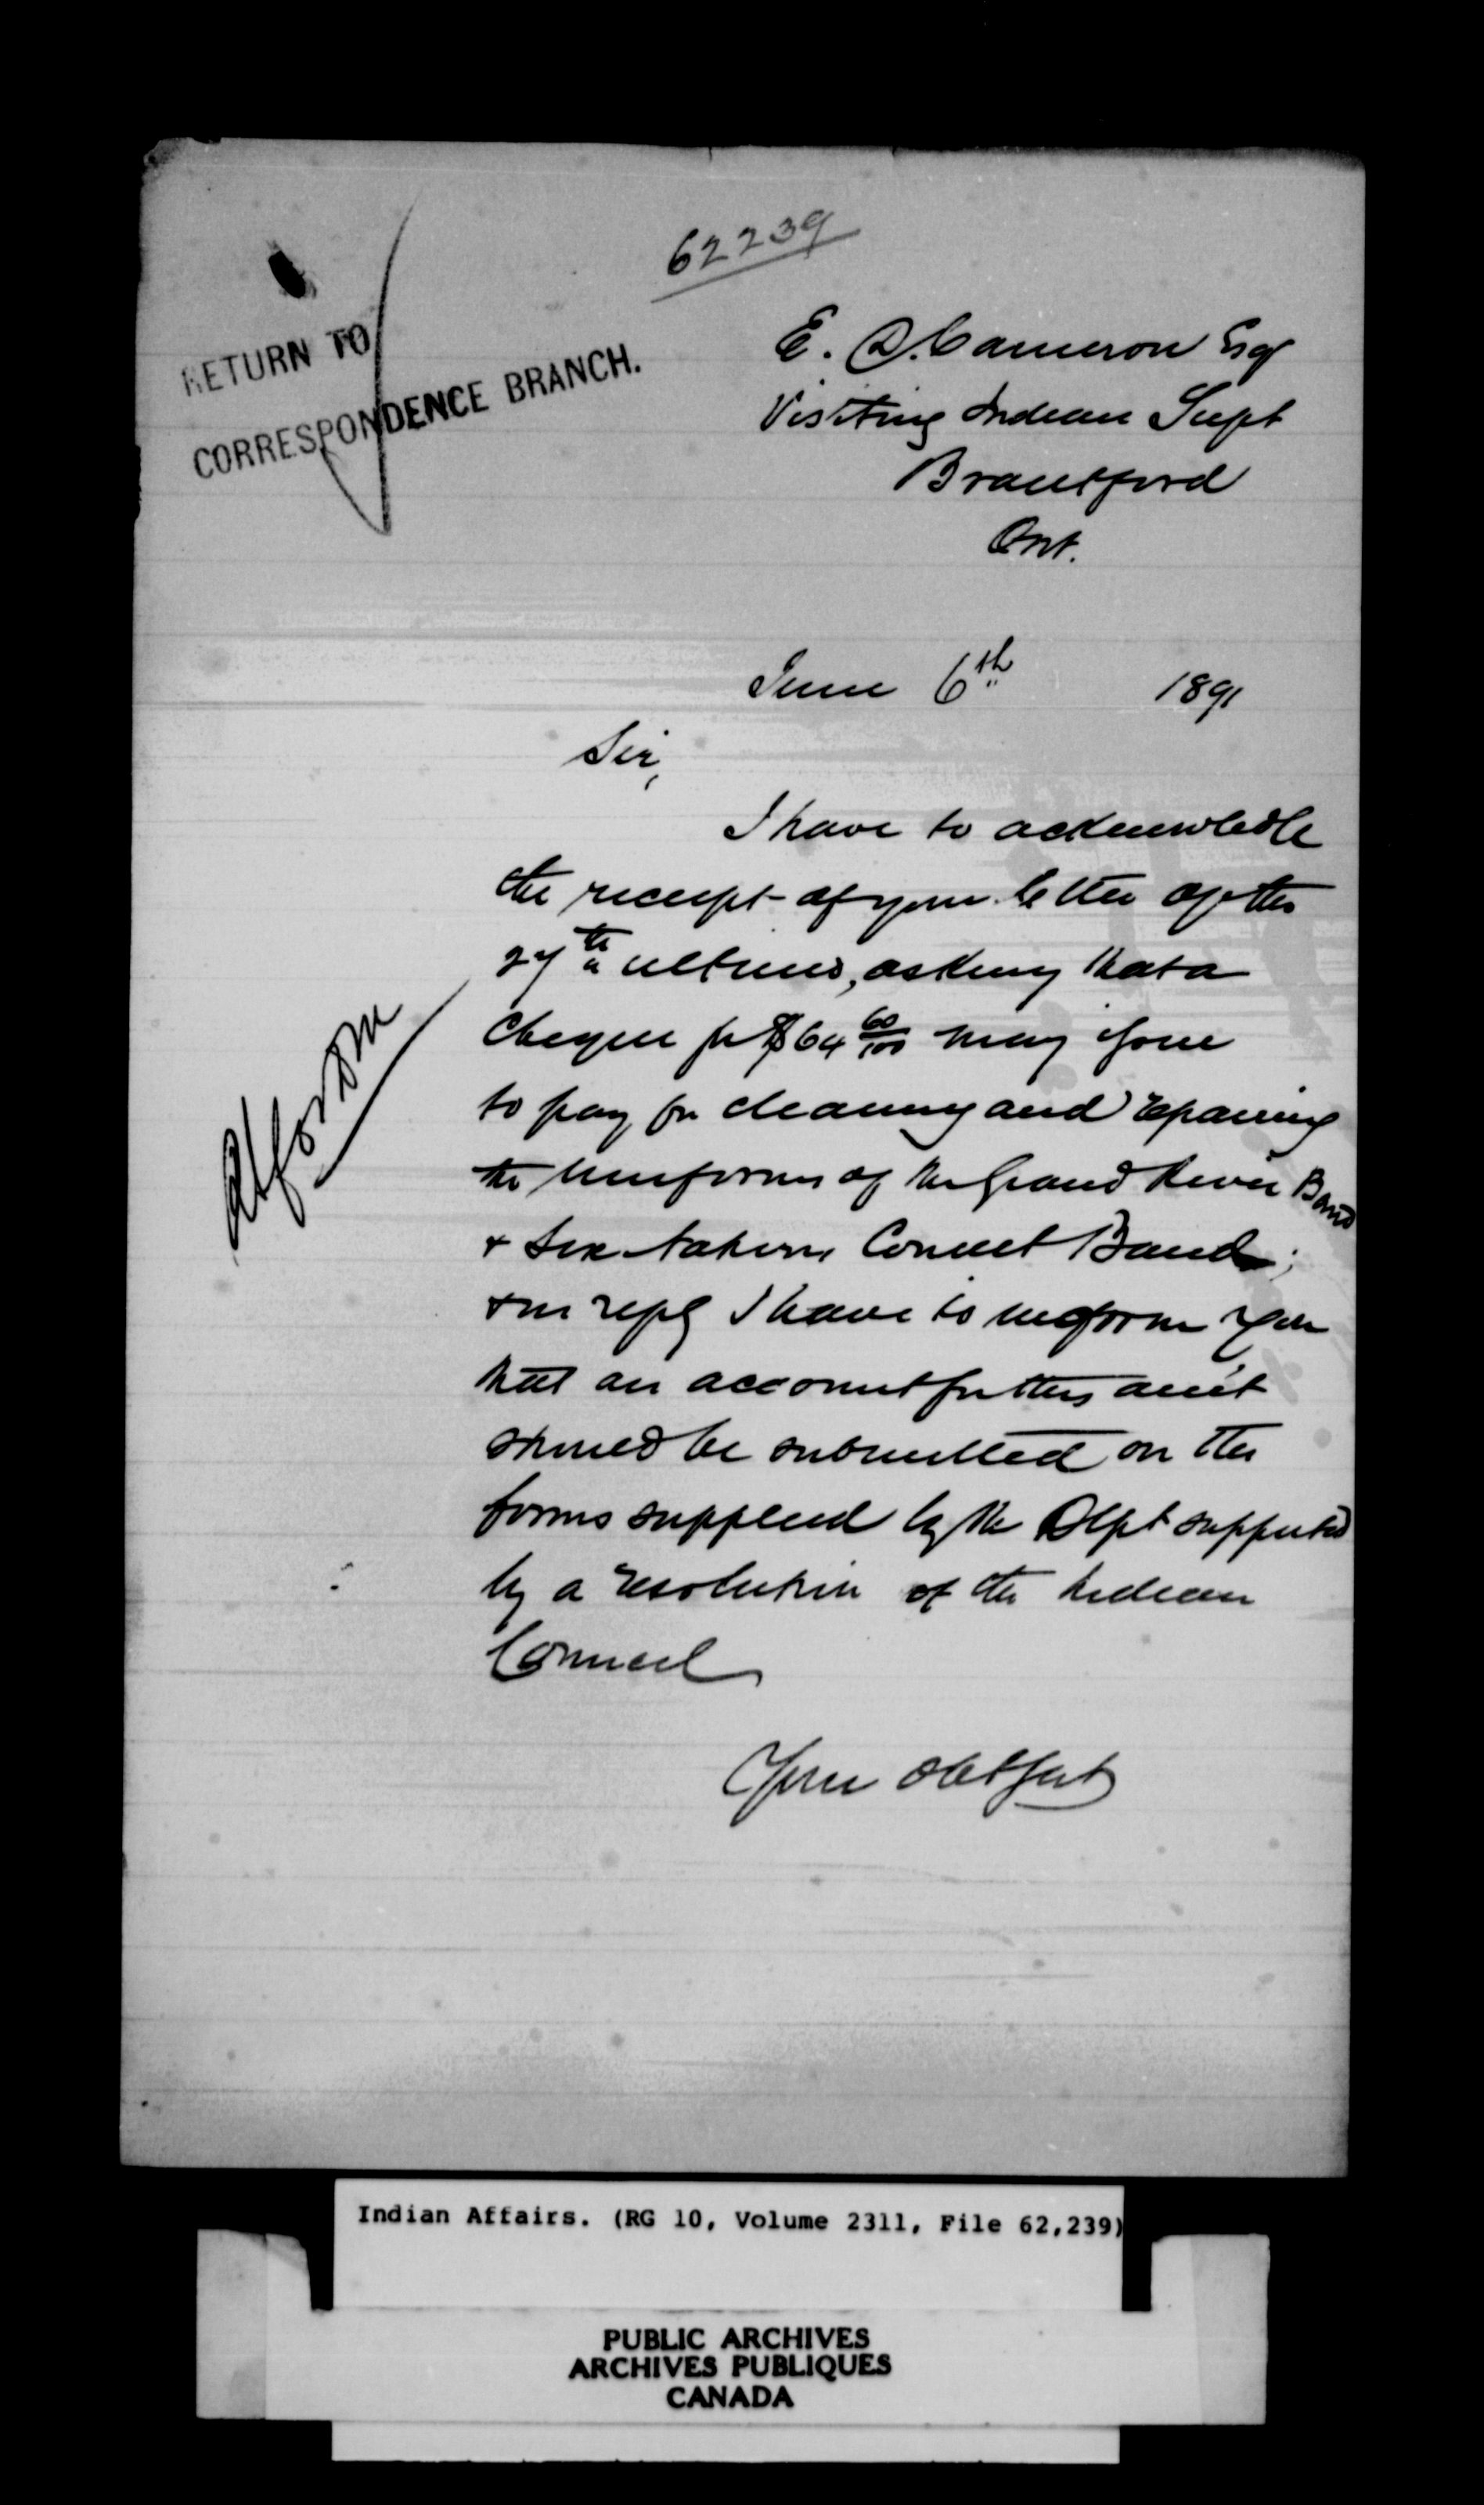 62239
RETURN TO
CORRESPONDENCE BRANCH.
E. D. Cameron Esq
Visiting Indian Supt
Brantford
Ont.
June 6th 1891
Sir,
I have to acknowledge
the receipt of your letter of the
27th ultimo, asking that a
cheque for $64 60/100 may issue
to pay for cleaning and repairing
the uniforms of the Grand River Band
& Six Nations Cornet Band;
& in reply I have to inform you
that an account for this am't
should be submitted on the
forms supplied by the Dept supported
by a resolution of the Indian
Council
Your obt Sert
Indian Affairs. (RG 10, Volume 2311, File 62,239)
PUBLIC ARCHIVES
ARCHIVES PUBLIQUES
CANADA